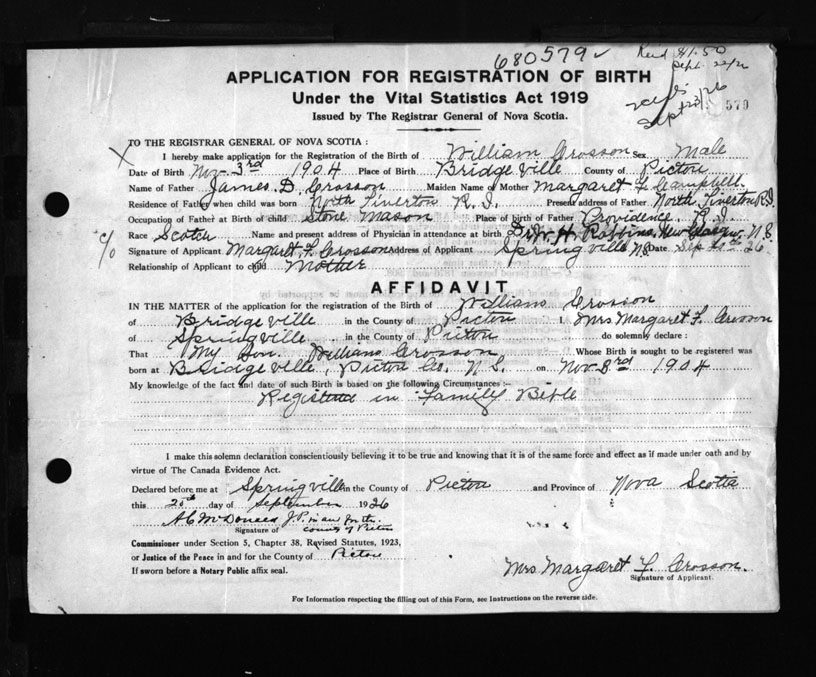 680579 Recd $1.50
Sept 22/26
APPLICATION FOR REGISTRATION OF BIRTH
Under the Vital Statistics Act 1919
Sept 23/26 579
Issued by The Registrar General of Nova Scotia.
TO THE REGISTRAR GENERAL OF NOVA SCOTIA :
X I hereby make application for the Registration of the Birth of William Crosson Sex Male
Date of Birth Nov. 3rd 1904 Place of Birth Bridgeville County of Pictou
Name of Father James D. Crosson Maiden Name of Mother Margaret F. Campbell.
Residence of Father when child was born North Tiverton R. I. Present address of Father North Tiverton R.I.
Occupation of Father at Birth of child Stone Mason Place of Birth of Father Providence, R. I.
Race Scotch Name and present address of Physician in attendance at birth Dr. W. H. Robbins, New Glasgow, N.S.
c/o Signature of Applicant Margaret F. Crosson Address of Applicant Springville N.S. Date Sep 26
Relationship of Applicant to child Mother
AFFIDAVIT
IN THE MATTER of the application for the registration of the Birth of William Crosson
of Bridgeville in the County of Pictou I. Mrs Margaret F. Crosson
of Springville in the County of Pictou do solemnly declare :
That My Son. William Crosson Whose Birth is sought to be registered was
born at Bridgeville, Pictou Co. N. S. on Nov 3rd 1904
My knowledge of the fact and date of such Birth is based on the following Circumstances :-
Registered in Family Bible
I make this solemn declaration conscientiously believing it to be true and knowing that it is of the same force and effect as if made under oath and by
virtue of The Canada Evidence Act.
Declared before me at Springville in the County of Pictou and Province of Nova Scotia
this day of September 1926
J.P. in and for the
Signature of county of Pictou
Commissioner under Section 5, Chapter 38, Revised Statutes, 1923,
or Justice of the Peace in and for the County of Pictou
If sworn before a Notary Public affix seal.
Mrs Margaret F. Crosson.
Signature of Applicant.
For Information respecting the filling out of this Form, see Instructions on the reverse side.